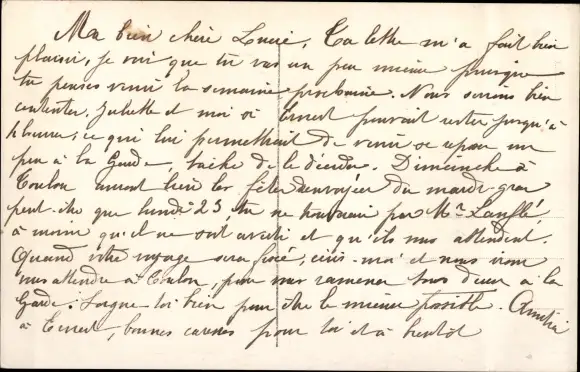 Ma bien chère Lucie, Ta lettre m'a fait bien
plaisir, je vois que tu vas un peu mieux puisque
tu penses venir la semaine prochaine. Nous serions bien
contentes, Juliette et moi si Ernest pouvait rester jusqu'à
ce qui lui permettrait de venir se reposer un
peu à la Garde, tâche de le décider. Dimanche à
Toulon auront lieu les fêtes du mardi-gras
peut-être que lundi 23, tu ne trouverais pas Mr
à moins qu'il ne soit averti et qu'ils nous attendent.
Quand votre voyage sera fixé, écris-moi et nous irons
vous attendre à Toulon, pour vous ramener tous deux à la
Garde. Soigne toi bien pour être le mieux possible. Amitié
à Ernest, bonnes caresses pour toi et à bientôt